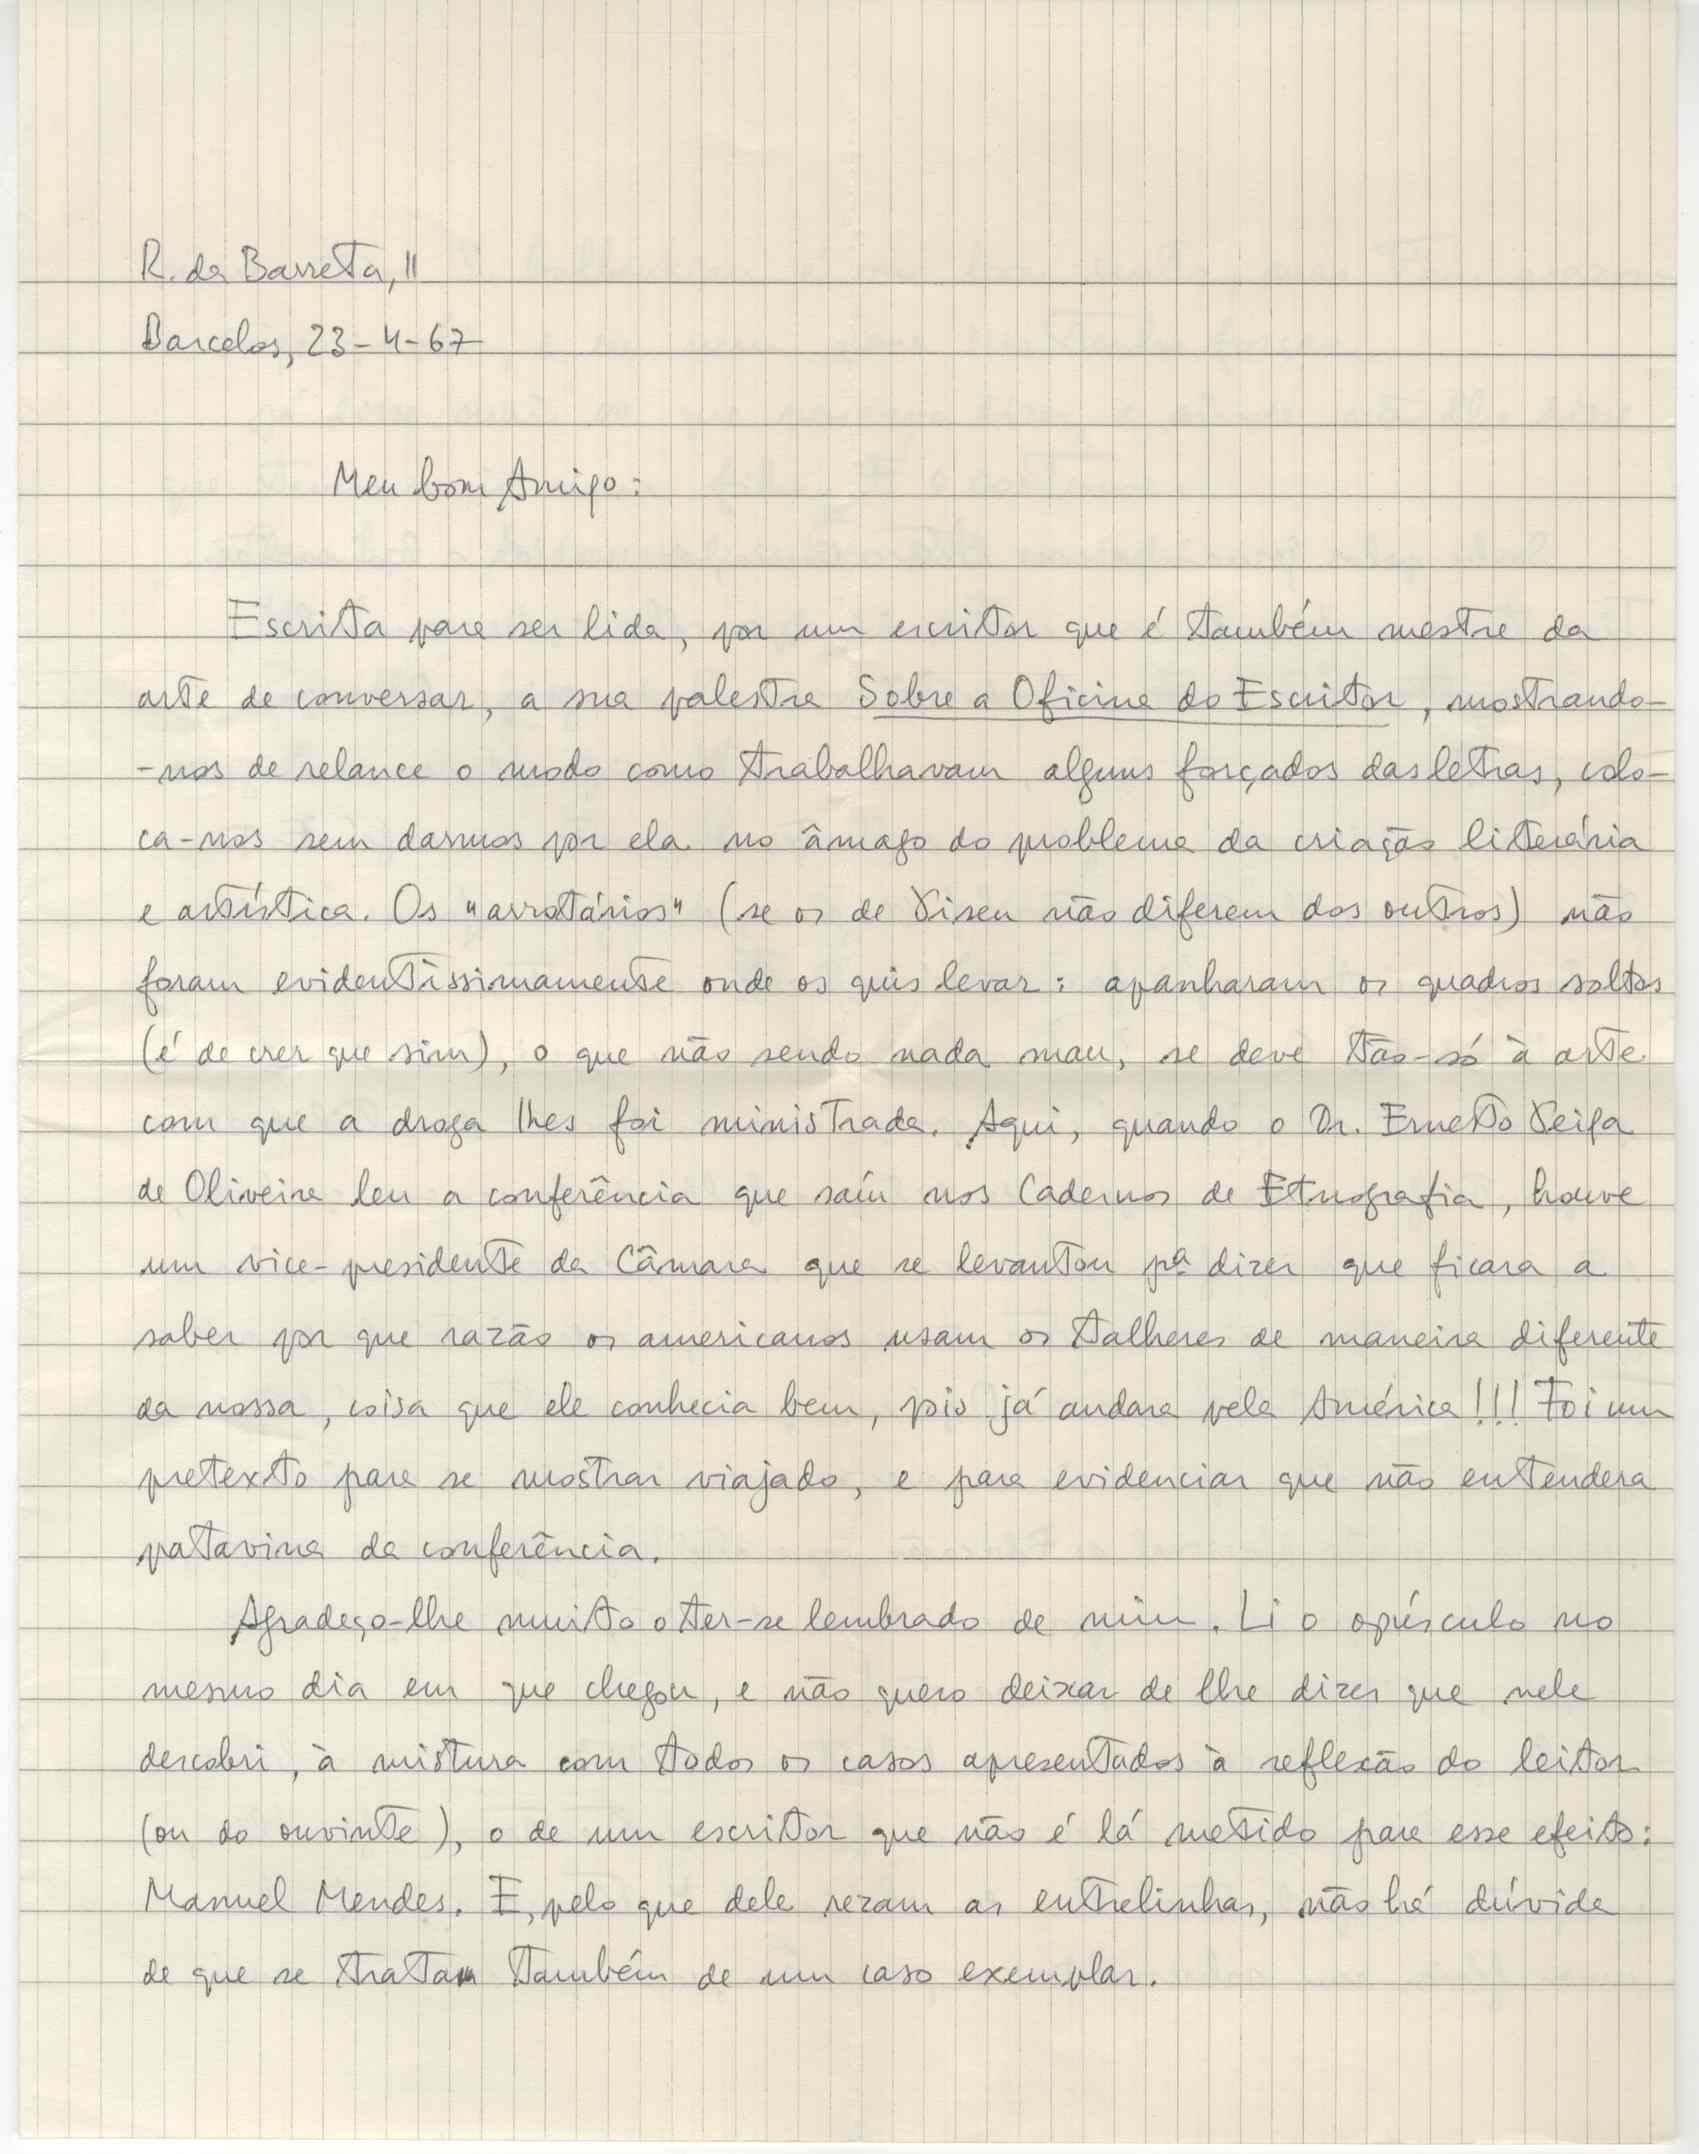 R. da Barreta, 11
Barcelos, 23-4-67
Meu bom Amigo:
Escrita para ser lida, por um escritor que é também mestre da
arte de conversar, a sua palestra Sobre a Oficina do Escritor, mostrando-
-nos de relance o modo como trabalhavam alguns forçados das letras, colo-
ca-nos sem darmos por ela no âmago do problema da criação literária
e artística. Os "arrotários" (se os de Viseu não diferem dos outros) não
foram evidentissimamente onde os quis levar: apanharam os quadros soltos
(é de crer que sim), o que não sendo nada mau, se deve tão-só à arte
com que a droga lhes foi ministrada. Aqui, quando o Dr. Ernesto Veiga
de Oliveira leu a conferência que saíu nos Cadernos de Etnografia, houve
um vice-presidente da Câmara que se levantou pª dizer que ficara a
saber por que razão os americanos usam os talheres de maneira diferente
da nossa, coisa que ele conhecia bem, pois já andara pela América!!! Foi um
pretexto para se mostrar viajado, e para evidenciar que não entendera
patavina da conferência.
Agradeço-lhe muito o ter-se lembrado de mim. Li o opúsculo no
mesmo dia em que chegou, e não quero deixar de lhe dizer que nele
descobri, à mistura com todos os casos apresentados à reflexão do leitor
(ou do ouvinte), o de um escritor que não é lá metido para esse efeito:
Manuel Mendes. E, pelo que dele rezam as entrelinhas, não há dúvida
de que se trata também de um caso exemplar.